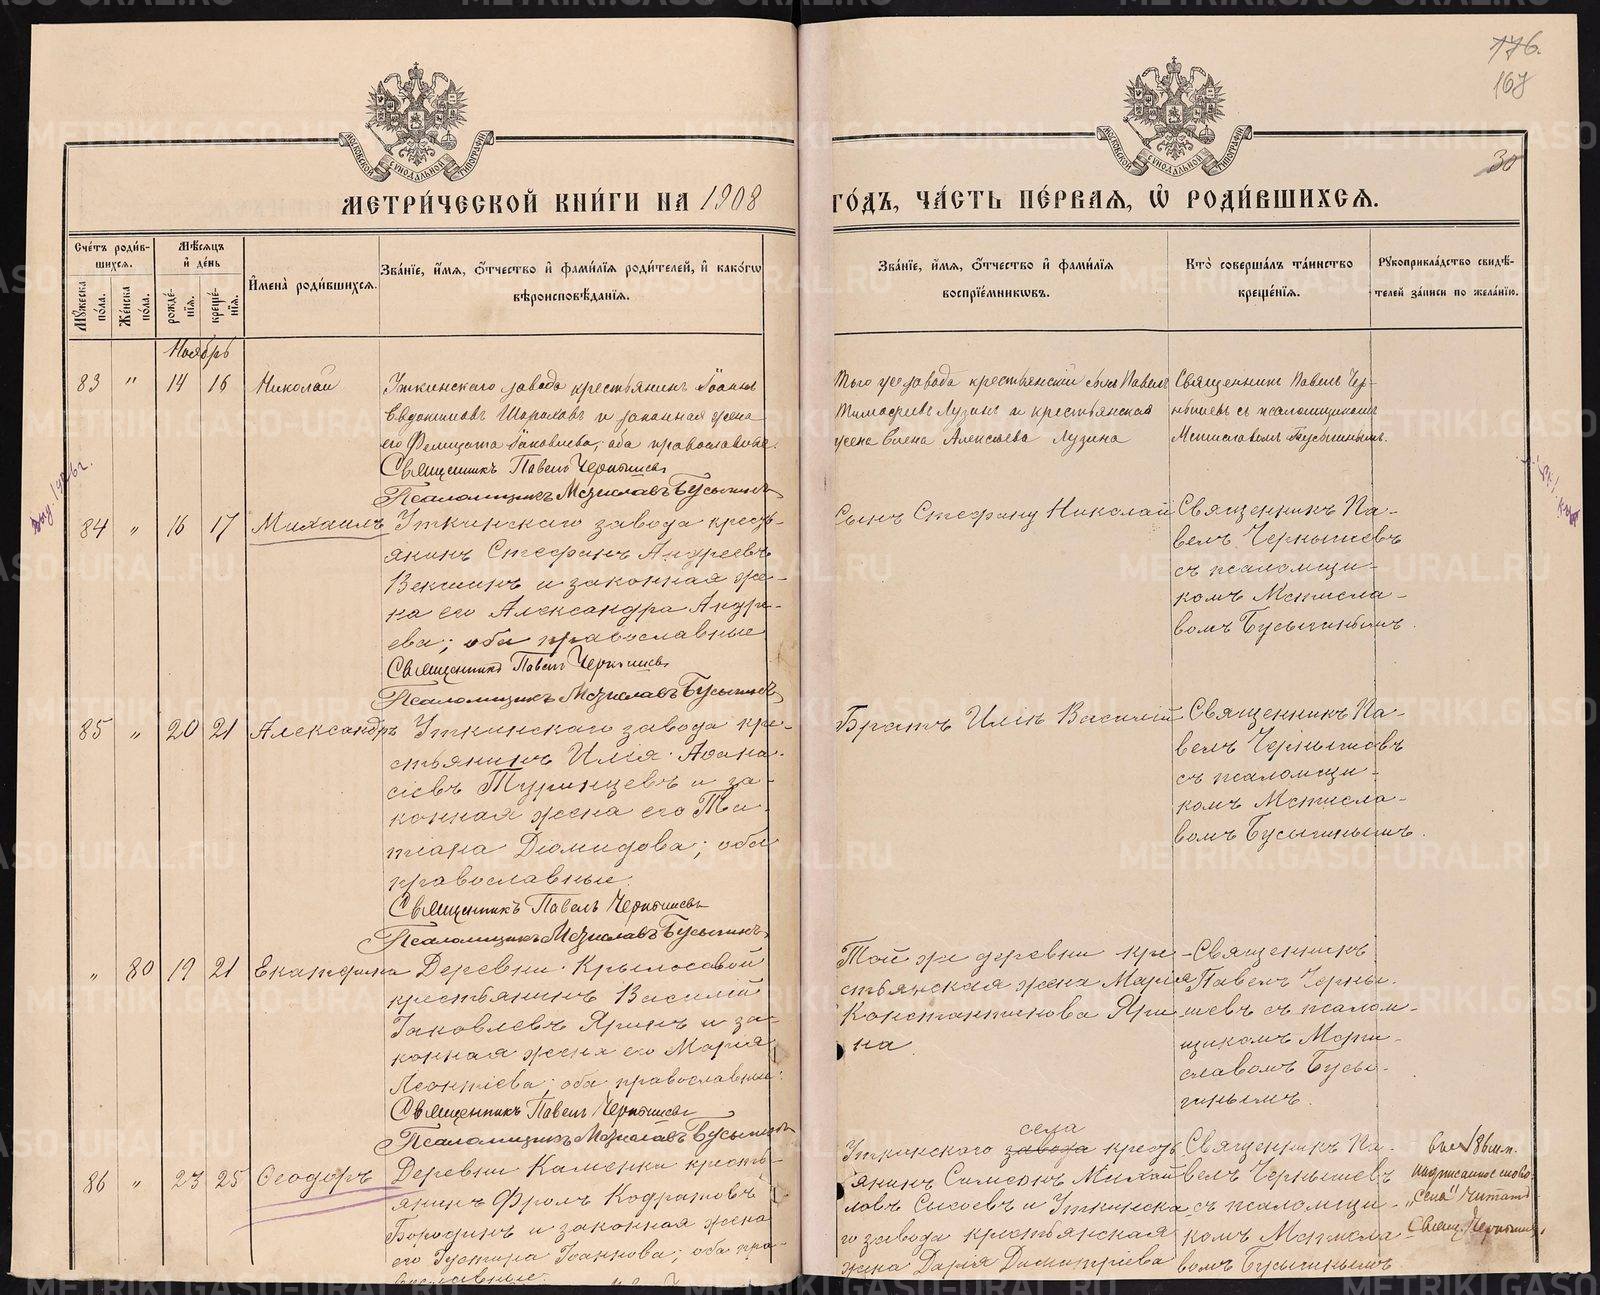 176.
167
30
МОСКОВСКОЙ СУНОДАЛЬНОЙ ТИПОГРАФІИ
МОСКОВСКОЙ СУНОДАЛЬНОЙ ТИПОГРАФІИ
МЕТРИ́ЧЕСКОЙ КНИ́ГИ НА 1908
ГО́ДЪ, ЧА́СТЬ ПЕ́РВАЯ, Ѡ҆ РОДИ́ВШИХСѦ.
Сче́тъ роди́в-
шихсѧ.
Мѣ́сѧцъ
и҆ де́нь
Мꙋ́жеска по́ла.
Же́нска по́ла.
рожде́-
нїѧ.
креще́-
нїѧ.
И҆мена̀ роди́вшихсѧ.
Зва́нїе, и҆́мѧ, ѻ҆́тчество и҆ фами́лїѧ роди́телей, и҆ како́гѡ
вѣроисповѣ́данїѧ.
Зва́нїе, и҆́мѧ, ѻ҆́тчество и҆ фами́лїѧ
воспрїе́мникѡвъ.
Кто̀ соверша́лъ та́инство
креще́нїѧ.
Рꙋкоприкла́дство свидѣ́-
телей за́писи по жела́нїю.
Ноябрь
83 " 14 16 Николай
Уткинскаго завода крестьянинъ Іоаннъ
Евдокимовъ Шараповъ и законная жена
его Фелицата Іаковлева, оба православные.
Священникъ Павелъ Чернышевъ
Псаломщикъ Мстиславъ Бусыгинъ
Того же завода крестьянскій сынъ Павелъ
Тимофеевъ Лузинъ и крестьянская
жена Елена Алексѣева Лузина
Священникъ Павелъ Чер-
нышевъ съ псаломщикомъ
Мстиславомъ Бусыгинымъ.
84 " 16 17 Михаилъ
Уткинскаго завода кресть-
янинъ Стефанъ Андреевъ
Векшинъ и законная же-
на его Александра Андре-
ева; оба православные
Священникъ Павелъ Чернышевъ
Псаломщикъ Мстиславъ Бусыгинъ
Сынъ Стефану Николай
Священникъ Па-
велъ Чернышевъ
съ псаломщи-
комъ Мстисла-
вомъ Бусыгинымъ.
85 " 20 21 Александръ
Уткинскаго завода кре-
стьянинъ Илія Афана-
сіевъ Туринцевъ и за-
конная жена его Та-
тіана Діомидова; оба
православные.
Священникъ Павелъ Чернышевъ
Псаломщикъ Мстиславъ Бусыгинъ
Братъ Иліи Василій
Священникъ Па-
велъ Чернышевъ
съ псаломщи-
комъ Мстисла-
вомъ Бусыгинымъ.
" 80 19 21 Екатерина
Деревни Крылосовой
крестьянинъ Василій
Іаковлевъ Яринъ и за-
конная жена его Марія
Леонтіева; оба православные.
Священникъ Павелъ Чернышевъ
Псаломщикъ Мстиславъ Бусыгинъ
Той же деревни кре-
стьянская жена Марія
Константинова Яри-
на
Священникъ
Павелъ Черны-
шевъ съ псалом-
щикомъ Мсти-
славомъ Бусы-
гинымъ.
86 " 23 25 Ѳеодоръ
Деревни Каменки кресть-
янинъ Фролъ Кодратовъ
Бородинъ и законная жена
его Іустина Іоаннова; оба пра-
вославные.
села
Уткинскаго завода кресть-
янинъ Симеонъ Михай-
ловъ Сысоевъ и Уткинска-
го завода крестьянская
жена Дарія Димитріева
Священникъ Па-
велъ Чернышевъ
съ псаломщи-
комъ Мстисла-
вомъ Бусыгинымъ
надписанное слово
"села" читать
Свящ. Чернышевъ
METRIKI.GASO-URAL.RU